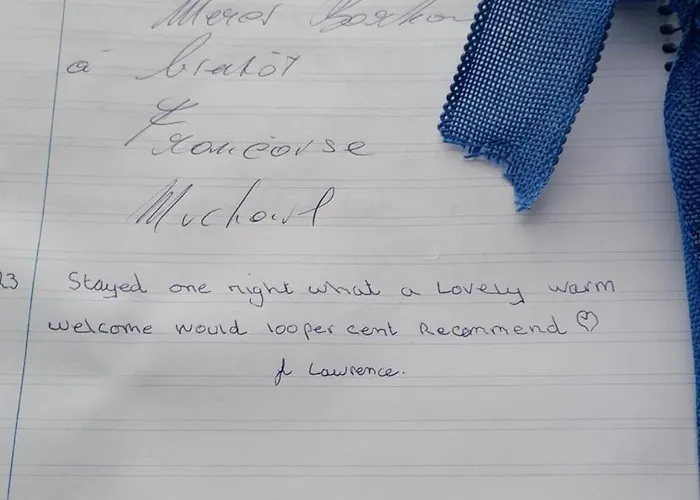 à bientôt
Francoise
Michael
23 Stayed one night what a Lovely warm
welcome would 100 per cent Recommend ♡
J Lawrence.